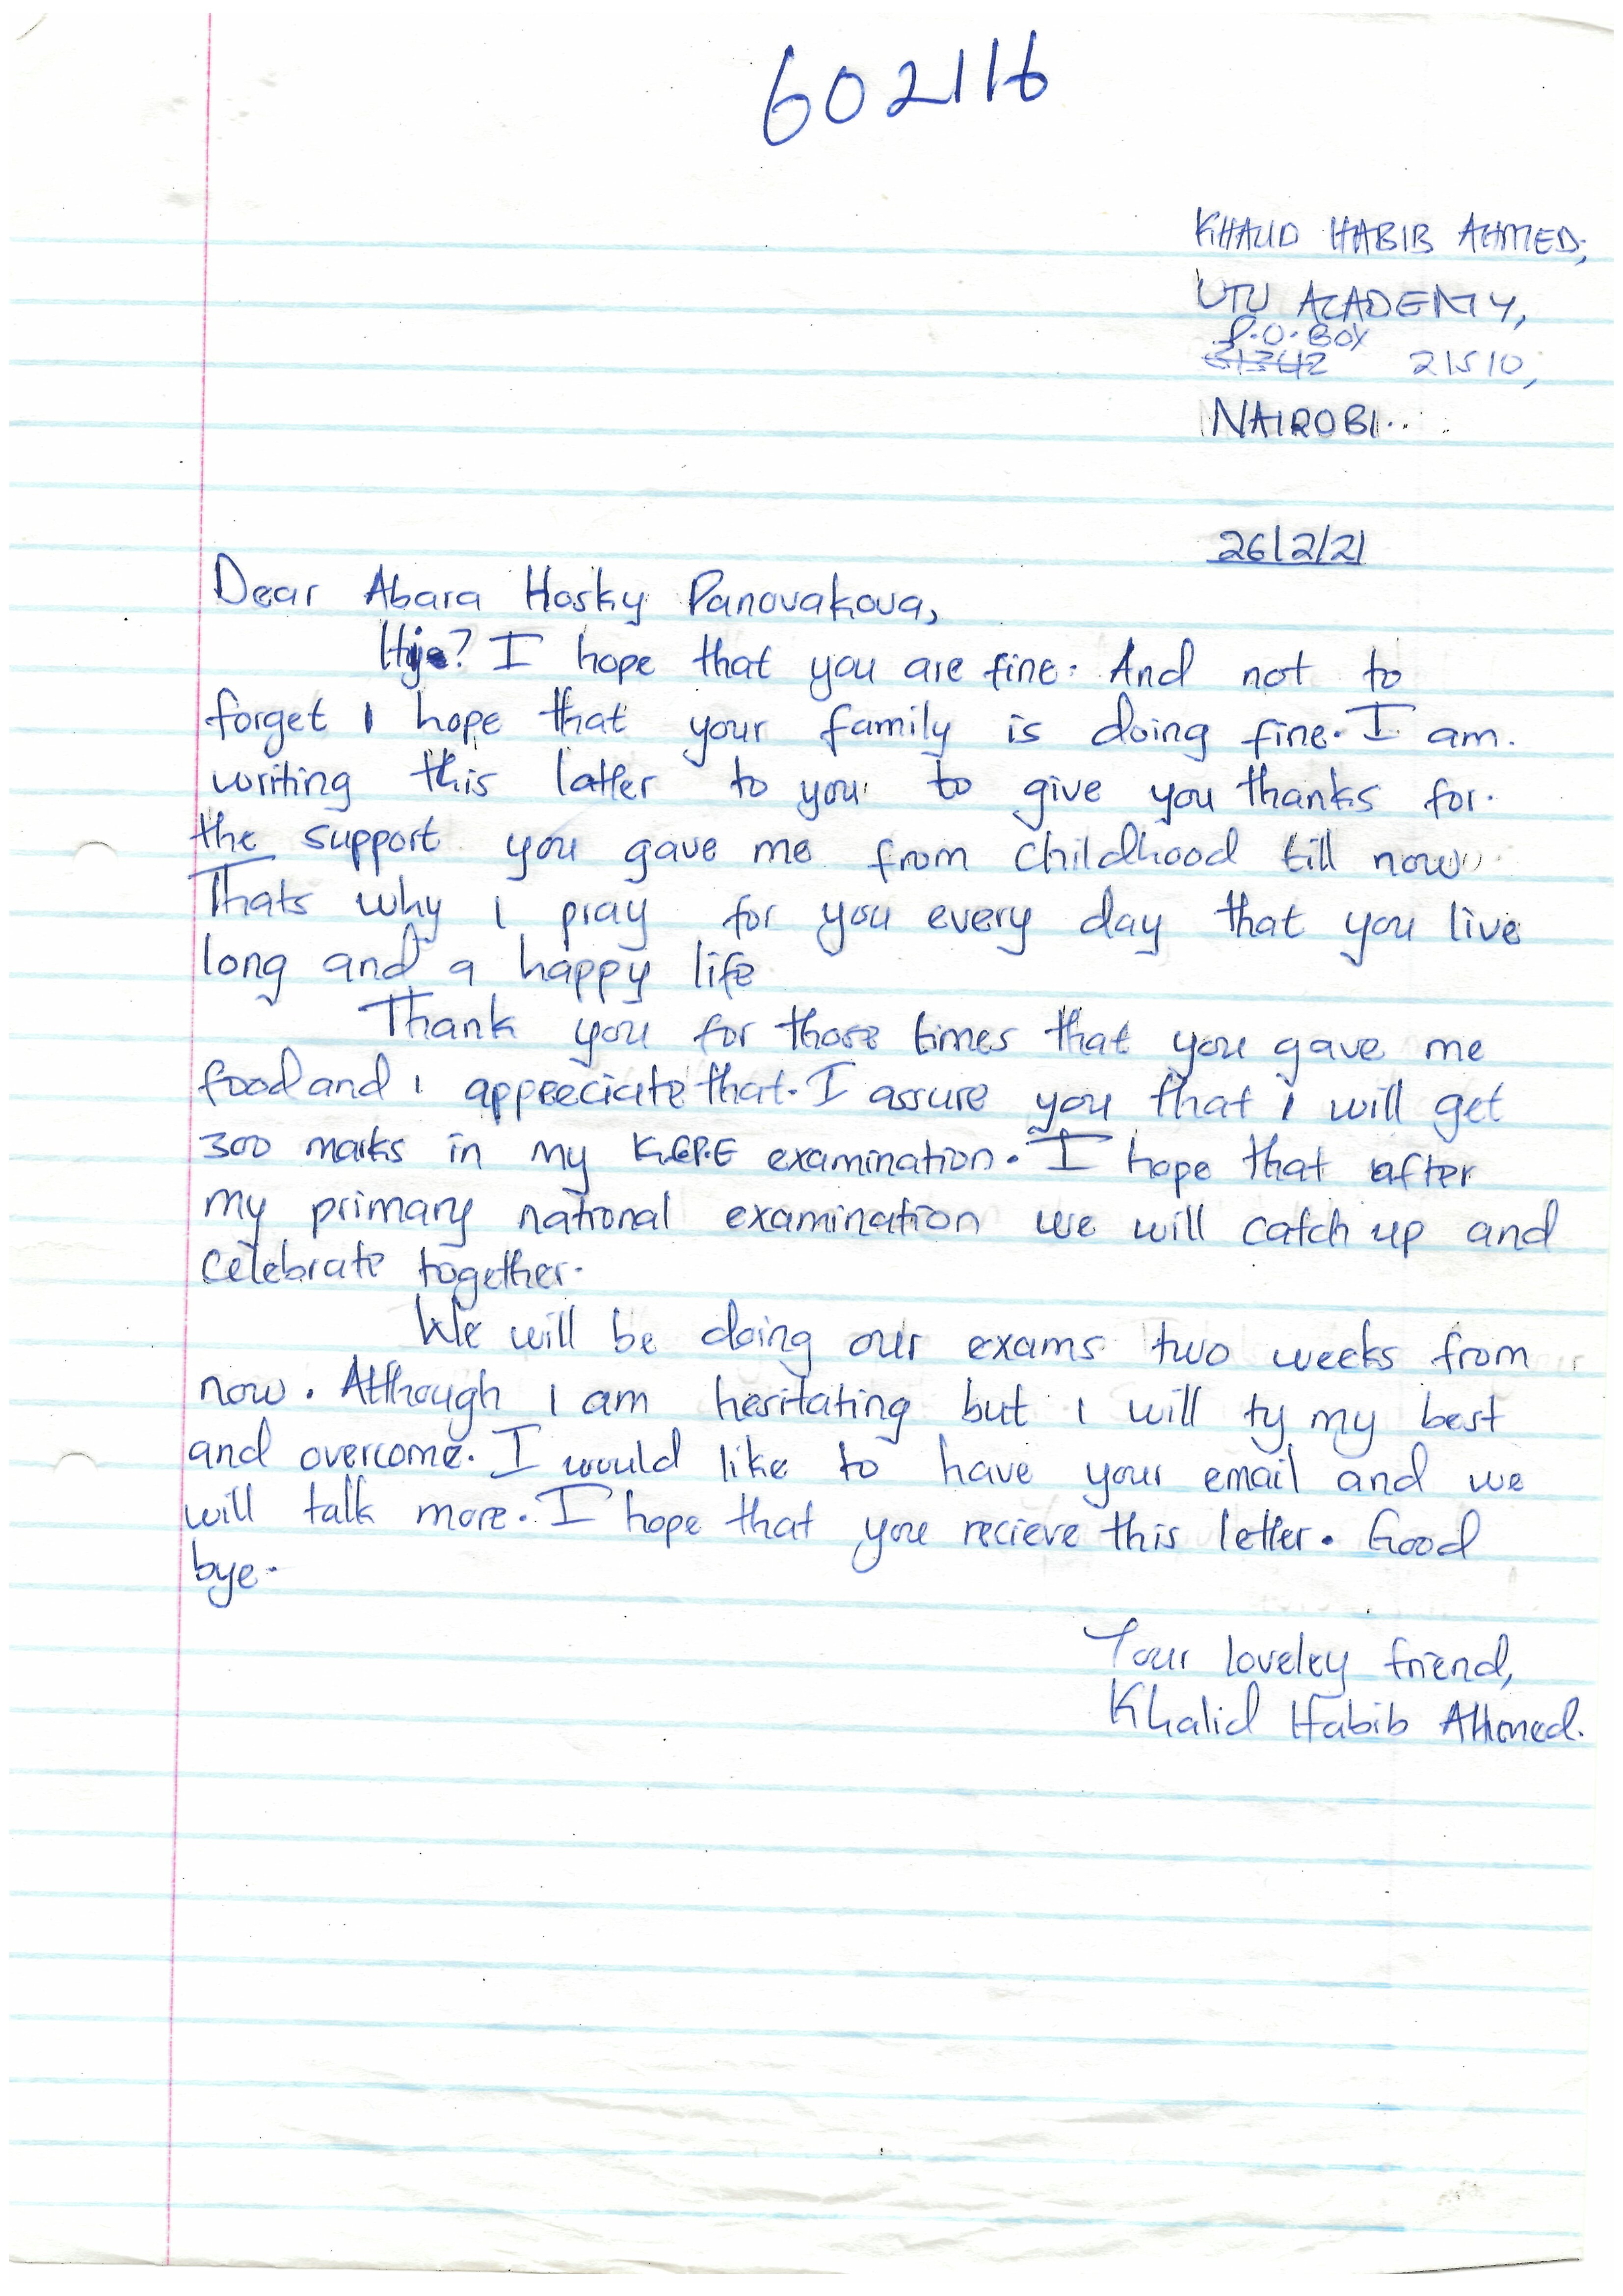 602116
KHALID HABIB AHMED,
UTU ACADEMY,
P.O. BOX
21510,
NAIROBI.
26/2/21
Dear Abara Hosky Panovakova,
? I hope that you are fine. And not to
forget I hope that your family is doing fine. I am.
writing this latter to you to give you thanks for.
the support you gave me from childhood till now
Thats why I pray for you every day that you live
long and a happy life
Thank you for those times that you gave me
food and I appreciate that. I assure you that I will get
300 marks in my K.C.P.E examination. I hope that after
my primary national examination we will catch up and
celebrate together.
We will be doing our exams two weeks from
now. Although I am hesitating but I will ty my best
and overcome. I would like to have your email and we
will talk more. I hope that you recieve this letter. Good
bye.
Your loveley friend,
Khalid Habib Ahmed.